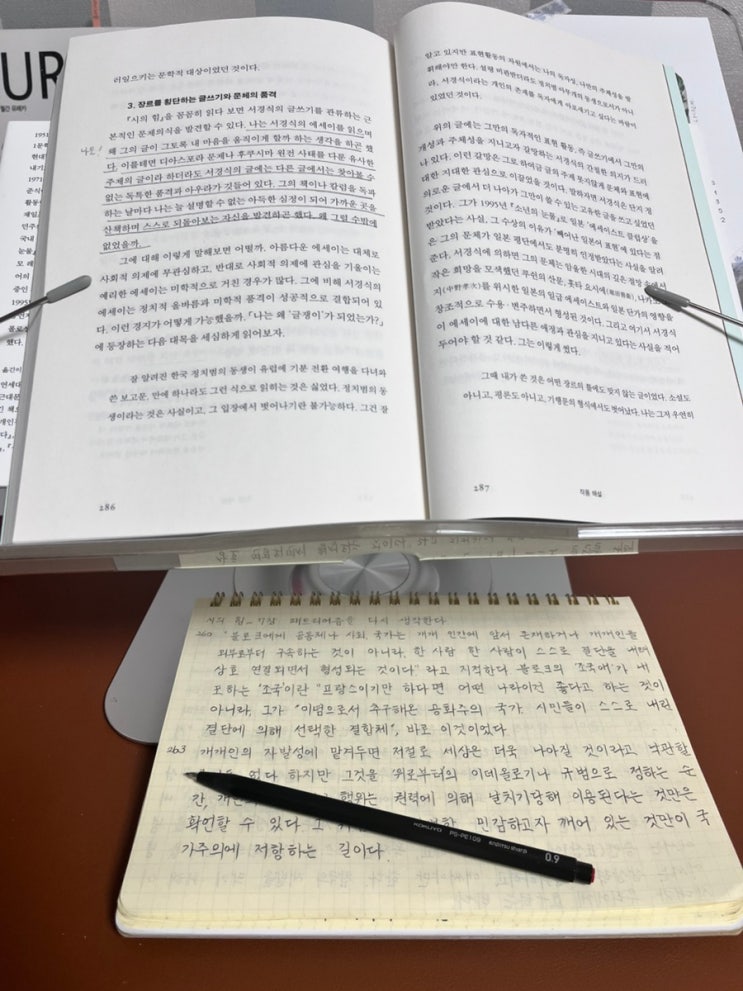 UR
러일으키는 문학적 대상이었던 것이다.
3. 장르를 횡단하는 글쓰기와 문체의 품격
『시의 힘』을 꼼꼼히 읽다 보면 서경식의 글쓰기를 관류하는 근
본적인 문제의식을 발견할 수 있다. 나는 서경식의 에세이를 읽으며
왜 그의 글이 그토록 내 마음을 움직이게 할까 하는 생각을 하곤 했
다. 이를테면 디아스포라 문제나 후쿠시마 원전 사태를 다룬 유사한
주제의 글이라 하더라도 서경식의 글에는 다른 글에서는 찾아볼 수
없는 독특한 품격과 아우라가 깃들어 있다. 그의 책이나 칼럼을 독파
하는 날마다 나는 늘 설명할 수 없는 아득한 심정이 되어 가까운 곳을
산책하며 스스로 되돌아보는 자신을 발견하곤 했다. 왜 그럴 수밖에
없었을까.
그에 대해 이렇게 말해보면 어떨까. 아름다운 에세이는 대체로
사회적 의제에 무관심하고, 반대로 사회적 의제에 관심을 기울이는
예리한 에세이는 미학적으로 거친 경우가 많다. 그에 비해 서경식의
에세이는 정치적 올바름과 미학적 품격이 성공적으로 결합되어 있
다. 이런 경지가 어떻게 가능했을까. 「나는 왜 '글쟁이'가 되었는가?」
에 등장하는 다음 대목을 세심하게 읽어보자.
잘 알려진 한국 정치범의 동생이 유럽에 기분 전환 여행을 다녀와
쓴 보고문, 만에 하나라도 그런 식으로 읽히는 것은 싫었다. 정치범의 동
생이라는 것은 사실이고, 그 입장에서 벗어나기란 불가능하다. 그건 잘
286
알고 있지만 표현활동의 차원에서는 나의 독자성, 나만의 주체성을 발
휘해야만 한다. 설령 비판받더라도 정치범 아무개의 동생으로서가 아니
라, 서경식이라는 개인의 존재를 독자에게 아로새기고 싶다는 바람이
있었던 것이다.
위의 글에는 그만의 독자적인 표현 활동, 즉 글쓰기에서 그만의
개성과 주체성을 지니고자 갈망하는 서경식의 간절한 의지가 드러
나 있다. 이런 갈망은 그로 하여금 글의 주제 못지않게 문체와 표현에
대한 지대한 관심으로 이끌었을 것이다. 말하자면 서경식은 단지 정
의로운 글에서 더 나아가 그만이 쓸 수 있는 고유한 글을 쓰고 싶었던
것이다. 그가 1995년 『소년의 눈물』로 일본 '에세이스트 클럽상'을
받았다는 사실, 그 수상의 이유가 '빼어난 일본어 표현'에 있다는 점
은 그의 문체가 일본 평단에서도 분명히 인정받았다는 사실을 알려
준다. 서경식에 의하면 그의 문체는 암울한 시대의 깊은 절망 속에서
작은 희망을 모색했던 루쉰의 산문, 홋타 요시에(堀田善衛), 나카노
지(中野孝次)를 위시한 일본의 일급 에세이스트와 일본 단가의 영향을
창조적으로 수용·변주하면서 형성된 것이다. 그리고 여기서 서경식
이 에세이에 대한 남다른 애정과 관심을 지니고 있다는 사실을 적어
두어야 할 것 같다. 그는 이렇게 썼다.
그때 내가 쓴 것은 어떤 장르의 틀에도 맞지 않는 글이었다. 소설도
아니고, 평론도 아니고, 기행문의 형식에서도 벗어났다. 나는 그저 우연히
287
작품 해설
시의 힘_ 다시 생각한다
260 "블로크에게 공동체나 사회, 국가는 개개 인간에 앞서 존재하거나 개개인을
외부로부터 구속하는 것이 아니라, 한 사람 한 사람이 스스로 결단을 내려
상호 연결되면서 형성되는 것이다."라고 지적한다. 블로크의 '조국애'가 내
포하는 '조국'이란 "프랑스이기만 하다면 어떤 나라이건 좋다고 하는 것이
아니라, 그가 "이념으로서 추구해온 공화주의 국가 시민들이 스스로 내린
결단에 의해 선택한 결합체", 바로 이것이었다.
263 개개인의 자발성에 맡겨두면 저절로 세상은 더욱 나아질 것이라고 낙관할
없다. 하지만 그것을 '위로부터'의 이데올로기나 규범으로 정하는 순
간, 행위는 권력에 의해 날치기당해 이용된다는 것만은
확언할 수 있다. 그 민감하고자 깨어 있는 것만이 국
가주의에 저항하는 길이다.
KOKUYO PS-PE109 enpitsu sharp 0.9